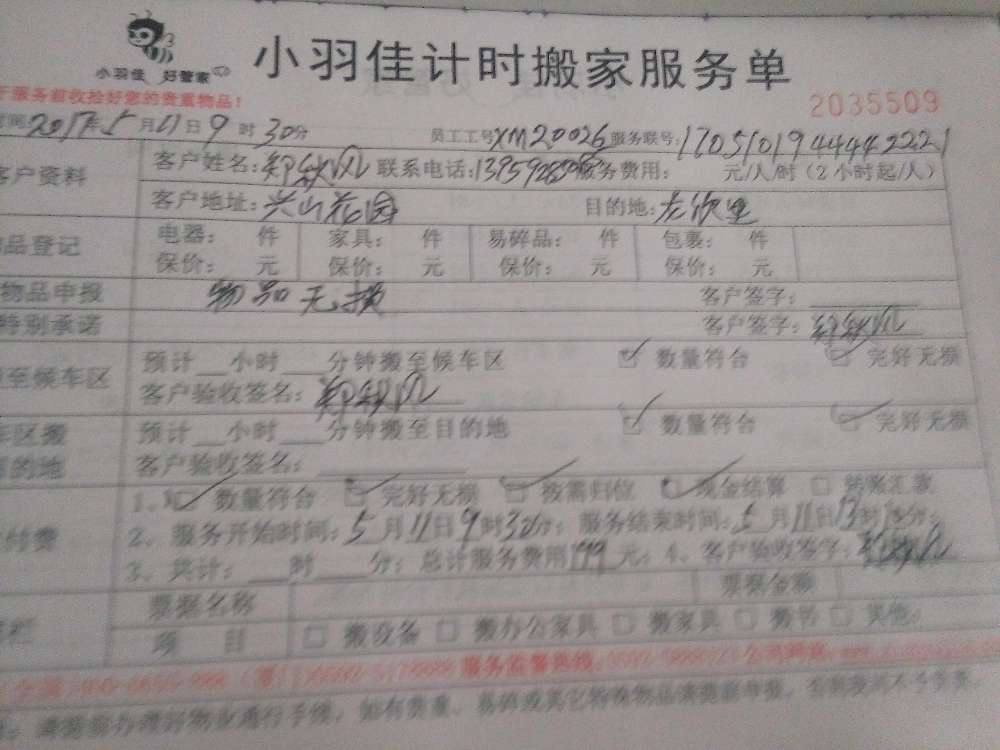 小羽佳 好管家
小羽佳计时搬家服务单
于服务前收拾好您的贵重物品！
2035509
时间2017年5月11日9时30分 员工工号:XM20026 服务联号:1705101944442221
客户资料 客户姓名:郑秋风 联系电话: 服务费用: 元/人/时（2小时起/人）
客户地址:兴山花园 目的地:龙欣里
品登记 电器: 件 家具: 件 易碎品: 件 包裹: 件
保价: 元 保价: 元 保价: 元 保价: 元
物品申报 物品无损 客户签字:
特别承诺 客户签字:郑秋风
至候车区 预计__小时___分钟搬至候车区 数量符合 完好无损
客户验收签名:郑秋风
车区搬 预计__小时___分钟搬至目的地 数量符合 完好无损
目的地 客户验收签名:
1、数量符合 完好无损 按需归位 现金结算 转账汇款
付费 2、服务开始时间:5月11日9时30分; 服务结束时间:5月11日13时 分;
3、共计: 时 分; 总计服务费用 元; 4、客户验收签字:郑秋风
票据名称 票据金额
项目 搬设备 搬办公家具 搬家具 搬书 其他:
服务监督热线:
请提前办理好物业通行手续，如有贵重、易碎或其它特殊物品请提前申报，